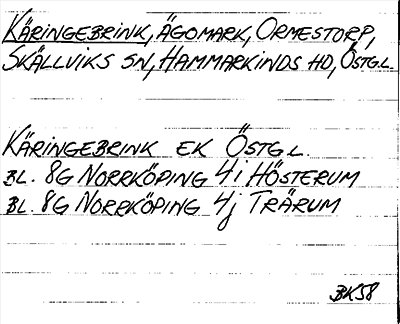 KÄRINGEBRINK, ÄGOMARK, ORMESTORP,
SKÄLLVIKS SN, HAMMARKINDS HD, ÖSTGL.
KÄRINGEBRINK EK ÖSTGL.
BL. 8G NORRKÖPING 4i HÖSTERUM
BL. 8G NORRKÖPING 4j TRÄRUM
BK58